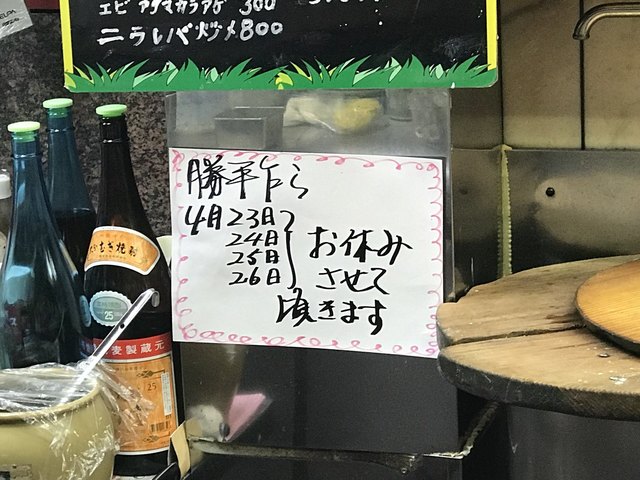 エビ アタマカラアゲ 300
ニラレバ炒メ800
勝手乍ら
4月23日
24日
25日
26日
お休み
させて
頂きます
むぎ焼酎
25
麦製蔵元
25